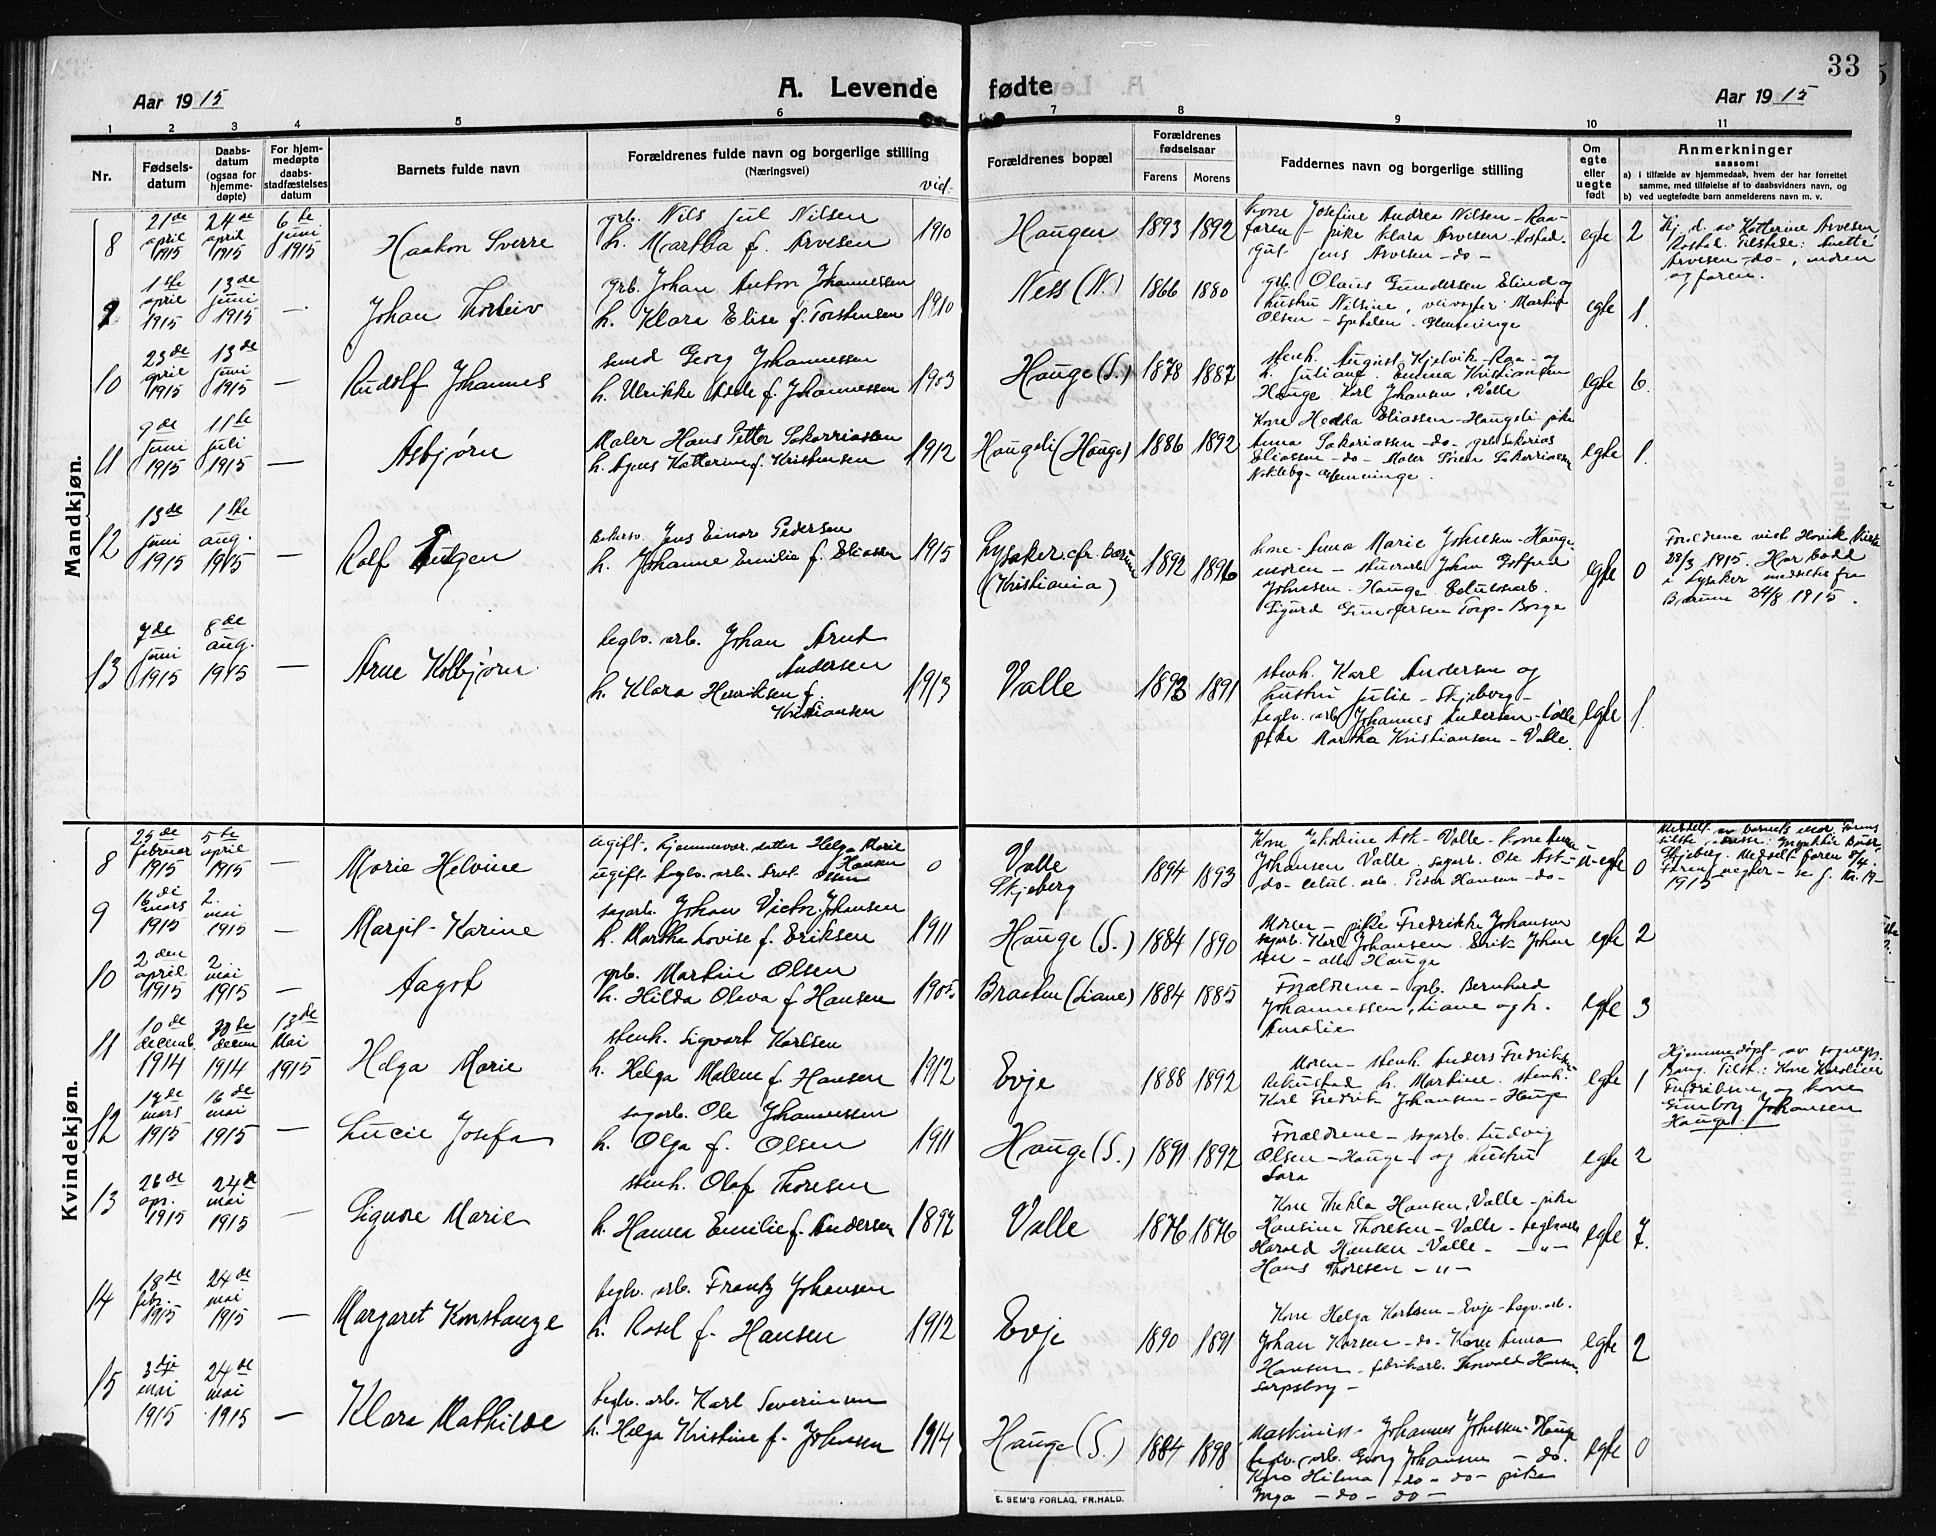 33
Aar 1915
A. Levende fødte
Aar 1915
1 2 3 4 5 6 7 8 9 10 11
Nr.
Fødsels-
datum
Daabs-
datum
(ogsaa for
hjemme-
døpte)
For hjem-
medøpte
daabs-
stadfæstelses
datum
Barnets fulde navn
Forældrenes fulde navn og borgerlige stilling
(Næringsvei)
vid.
Forældrenes bopæl
Forældrenes
fødselsaar
Farens Morens
Faddernes navn og borgerlige stilling
Om
egte
eller
uegte
født
Anmerkninger
saasom:
a) i tilfælde av hjemmedaab, hvem der har forrettet
samme, med tilføielse af to daabsvidners navn, og
b) ved uegtefødte barn anmelderens navn m. v.
Mandkjøn.
8
21de april 1915
24de april 1915
6te juni 1915
Haakon Sverre
grb. Nils Jul Nilsen
h. Martha f. Arvesen
1910
Haugen
1893 1892
Kone Josefine Andrea Nilsen - Raa-
faren - pike Klara Arvesen - Rostad.
Gut Jens Arvesen - do -
egte 2
Hj. d. av Katterine Arvesen
Rostad. Tilstede: Anette
Arvesen - do -, moren
og faren.
9
14de april 1915
13de juni 1915
—
Johan Thorleiv
grb. Johan Anton Johannessen
h. Klara Elise f. Torstensen
1910
Ness (N.)
1866 1880
grb. Olaus Gundersen Elind og
hustru Nilsine, veivogter Martin
Olsen - Spetalen. Glemminge
egte 1.
10
23de april 1915
13de juni 1915
—
Rudolf Johannes
smed Georg Johannessen
h. Ulrikke Adele f. Johannessen
1903
Hauge (S.)
1878 1887
stenh. August Kjølvik - Raa - og
h. Juliane. Emma Kristiansen
Hauge. Karl Johansen, Valle
egte 6.
11
9de juni 1915
11te juli 1915
—
Asbjørn
Maler Hans Petter Sakariassen
h. Agnes Katterine f. Kristensen
1912
Haugsli (Hauge)
1886 1892
Kone Hedda Eliassen - Haugsli. pike
Anna Sakariassen - do - grb. Sakarias
Eliassen - do - Maler Søren Sakariassen
Nokleby - Glemminge.
egte 1.
12
13de juni 1915
1ste aug. 1915
—
Rolf Eugen
Jens Einar Pedersen
h. Johanne Emilie f. Eliassen
1915
Lysaker
(Kristiania)
1892 1896
kone Anna Marie Johnsen - Hauge
moren - Johan Gotfred
Johnsen - Hauge.
Sigurd Gundersen Torp - Borge
egte 0
Forældrene viet Høvik kirke
28/3 1915. Har bodd
i Lysaker meddelt fra
Bærum 24/8 1915.
13
7de juni 1915
8de aug. 1915
—
Arne Kolbjørn
teglv. arb. Johan Arnt
Andersen
h. Klara Henriksen f.
Kristiansen
1913
Valle
1893 1891
stenh. Karl Andersen og
hustru Julie - Skjeberg -
teglv. arb. Johannes Andersen - Valle
pike Martha Kristiansen - Valle.
egte 1.
Kvindekjøn.
8
25de februar 1915
5te april 1915
—
Marie Helvine
ugift. hjemmevær. datter Helga Marie
Hansen
ugift teglv. arb.
0
Valle
Skjeberg
1894 1893
Kone Ask - Valle - kone Anna
Johansen Valle. sagarb. Ole Ask -
do - arb. Peder Hansen - do -
u-egte 0
Skjeberg.
1915
9
16de mars 1915
2. mai 1915
—
Margit - Karine
sagarb. Johan Victor Johansen
h. Martha Lovise f. Eriksen
1911
Hauge (S.)
1884 1890
Moren - pike Fredrikke Johansen
sagarb. Karl Johansen. Erik Johan
sen - alle Hauge
egte 2
10
2den april 1915
2. mai 1915
—
Aagot
grb. Martin Olsen
h. Hilda Oleva f. Hansen
1905
Braaten (Liane)
1884 1885
Forældrene - grb. Bernhard
Johannessen, Liane og h.
Amalie
egte 3
11
10de decemb. 1914
30te decem 1914
13de Mai 1915
Helga Marie
stenh. Sigvart Karlsen
h. Helga Malene f. Hansen
1912
Evje
1888 1892
Moren - stenh. Anders Fredrik
h. Martine. stenh.
Karl Fredrik Johansen - Hauge
egte 1
Hjemmedøpt av sognepr.
Bang. Tilst.: Kone Karoline
og kone
Gunborg Johansen
Hauge.
12
14de mars 1915
16de mai 1915
—
Lucie Josefa
sagarb. Ole Johannessen
h. Olga f. Olsen
1911
Hauge (S.)
1891 1892
Forældrene - sagarb. Ludvig
Olsen - Hauge - og hustru
Sara
egte 2
13
26de apr. 1915
24de mai 1915
—
Signore Marie
stenh. Olaf Thoresen
h. Hanna Emilie f. Andersen
1897
Valle
1876 1876
Kone Thekla Hansen, Valle - pike
Hansine Thoresen - Valle - teglv.arb
Harald Hansen - Valle - — „ —
Hans Thoresen - „ -
egte 7.
14
18de febr. 1915
24de mai 1915
—
Margaret Konstanze
teglv. arb. Frantz Johansen
h. Rosel f. Hansen
1912
Evje
1890 1891
Kone Helga Karlsen - Evje - tegv. arb.
Johan Karsen - do - Kone Anna
Hansen - fabrikarb. Thorvald Hansen
Sarpsborg -
egte 2
15
3dje mai 1915
24de mai 1915
—
Klara Mathilde
teglv. arb. Karl Severinsen
h. Helga Kristine f. Johnsen
1914
Hauge (S.)
1884 1898
Maskinist - Johannes Johnsen - Hauge
teglv. arb. Georg Johansen - do.
Kone Hilma - do - do - pike
Inga - do - do -
egte 0
E. SEM'S FORLAG, FR.HALD.